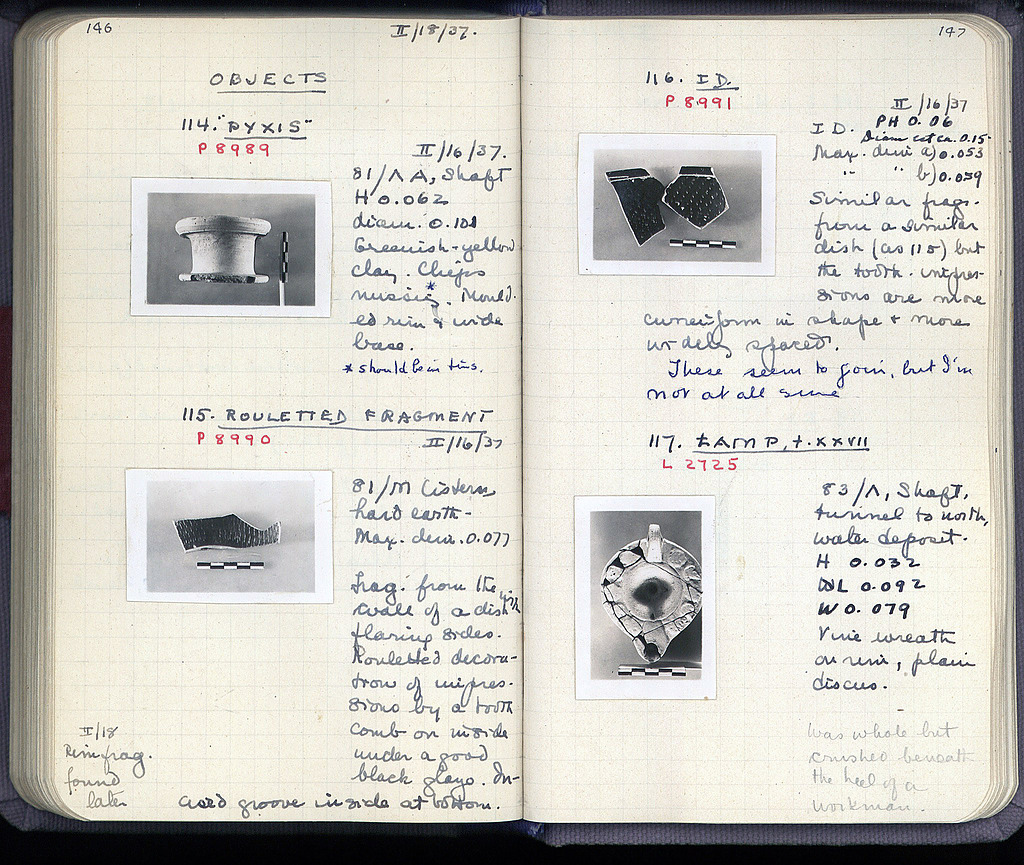 146
II/18/37.
OBJECTS
114. "PYXIS"
P 8989
II/16/37.
81/Λ A, Shaft
H 0.062
diam. 0.101
Greenish-yellow
clay. Chips
missing*. Mould-
ed rim & wide
base.
* should be in tins.
115. ROULETTED FRAGMENT
P 8990
II/16/37
81/M Cistern
hard earth-
Max. dim. 0.077
Frag. from the
wall of a dish with
flaring sides.
Rouletted decora-
tion of impres-
sions by a tooth
comb on inside
under a good
black glaze. In-
cised groove inside at bottom.
II/18
Rim frag.
found
later
147
116. ID.
P 8991
II/16/37
ID. PH 0.06
Diam est ca. 0.15
Max. dim a) 0.053
" " b) 0.059
Similar frags.
from a similar
dish (as 115) but
the tooth impres-
sions are more
cuneiform in shape & more
widely spaced.
These seem to join, but I'm
not at all sure
117. LAMP, t. XXVII
L 2725
83/Λ, Shaft.
tunnel to north,
water deposit.
H 0.032
L 0.092
W 0.079
Vine wreath
on rim, plain
discus.
Was whole but
crushed beneath
the heel of a
workman.